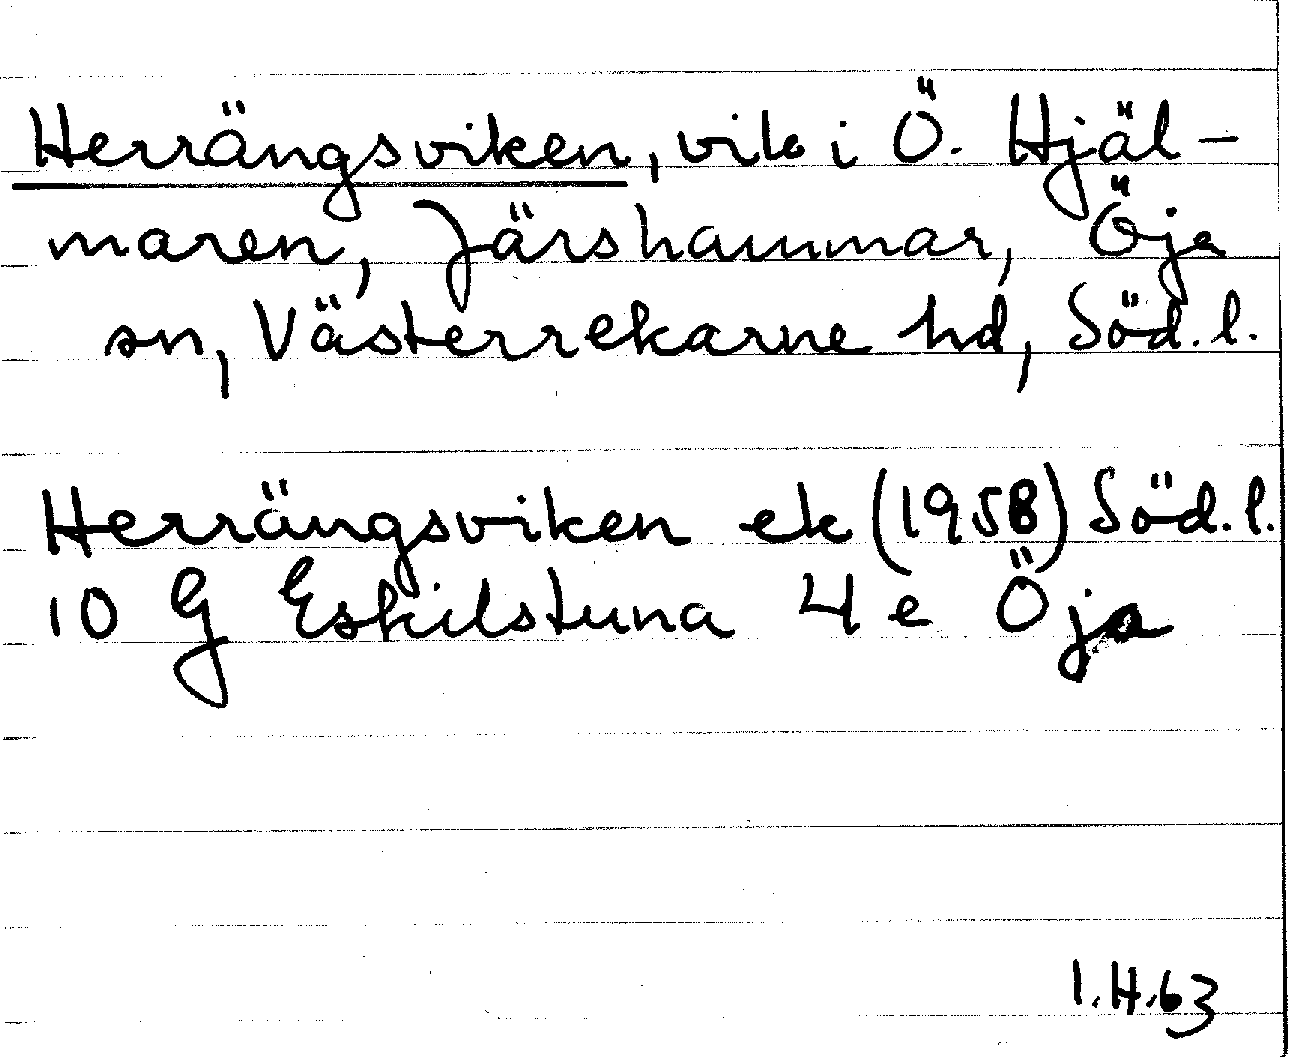 Herrängsviken, vik i Ö. Hjäl-
maren, Järshammar, Öja
sn, Västerrekarne hd, Söd.l.
Herrängsviken ek (1958) Söd.l.
10 G Eskilstuna 4 e Öja
I.H.63